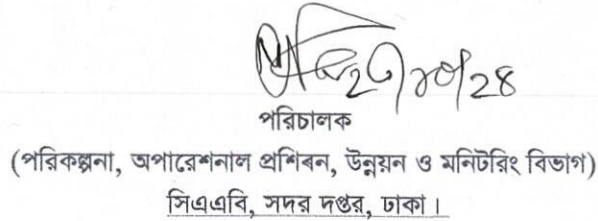 পরিচালক
(পরিকল্পনা, অপারেশনাল প্রশিক্ষন, উন্নয়ন ও মনিটরিং বিভাগ)
সিএএবি, সদর দপ্তর, ঢাকা।